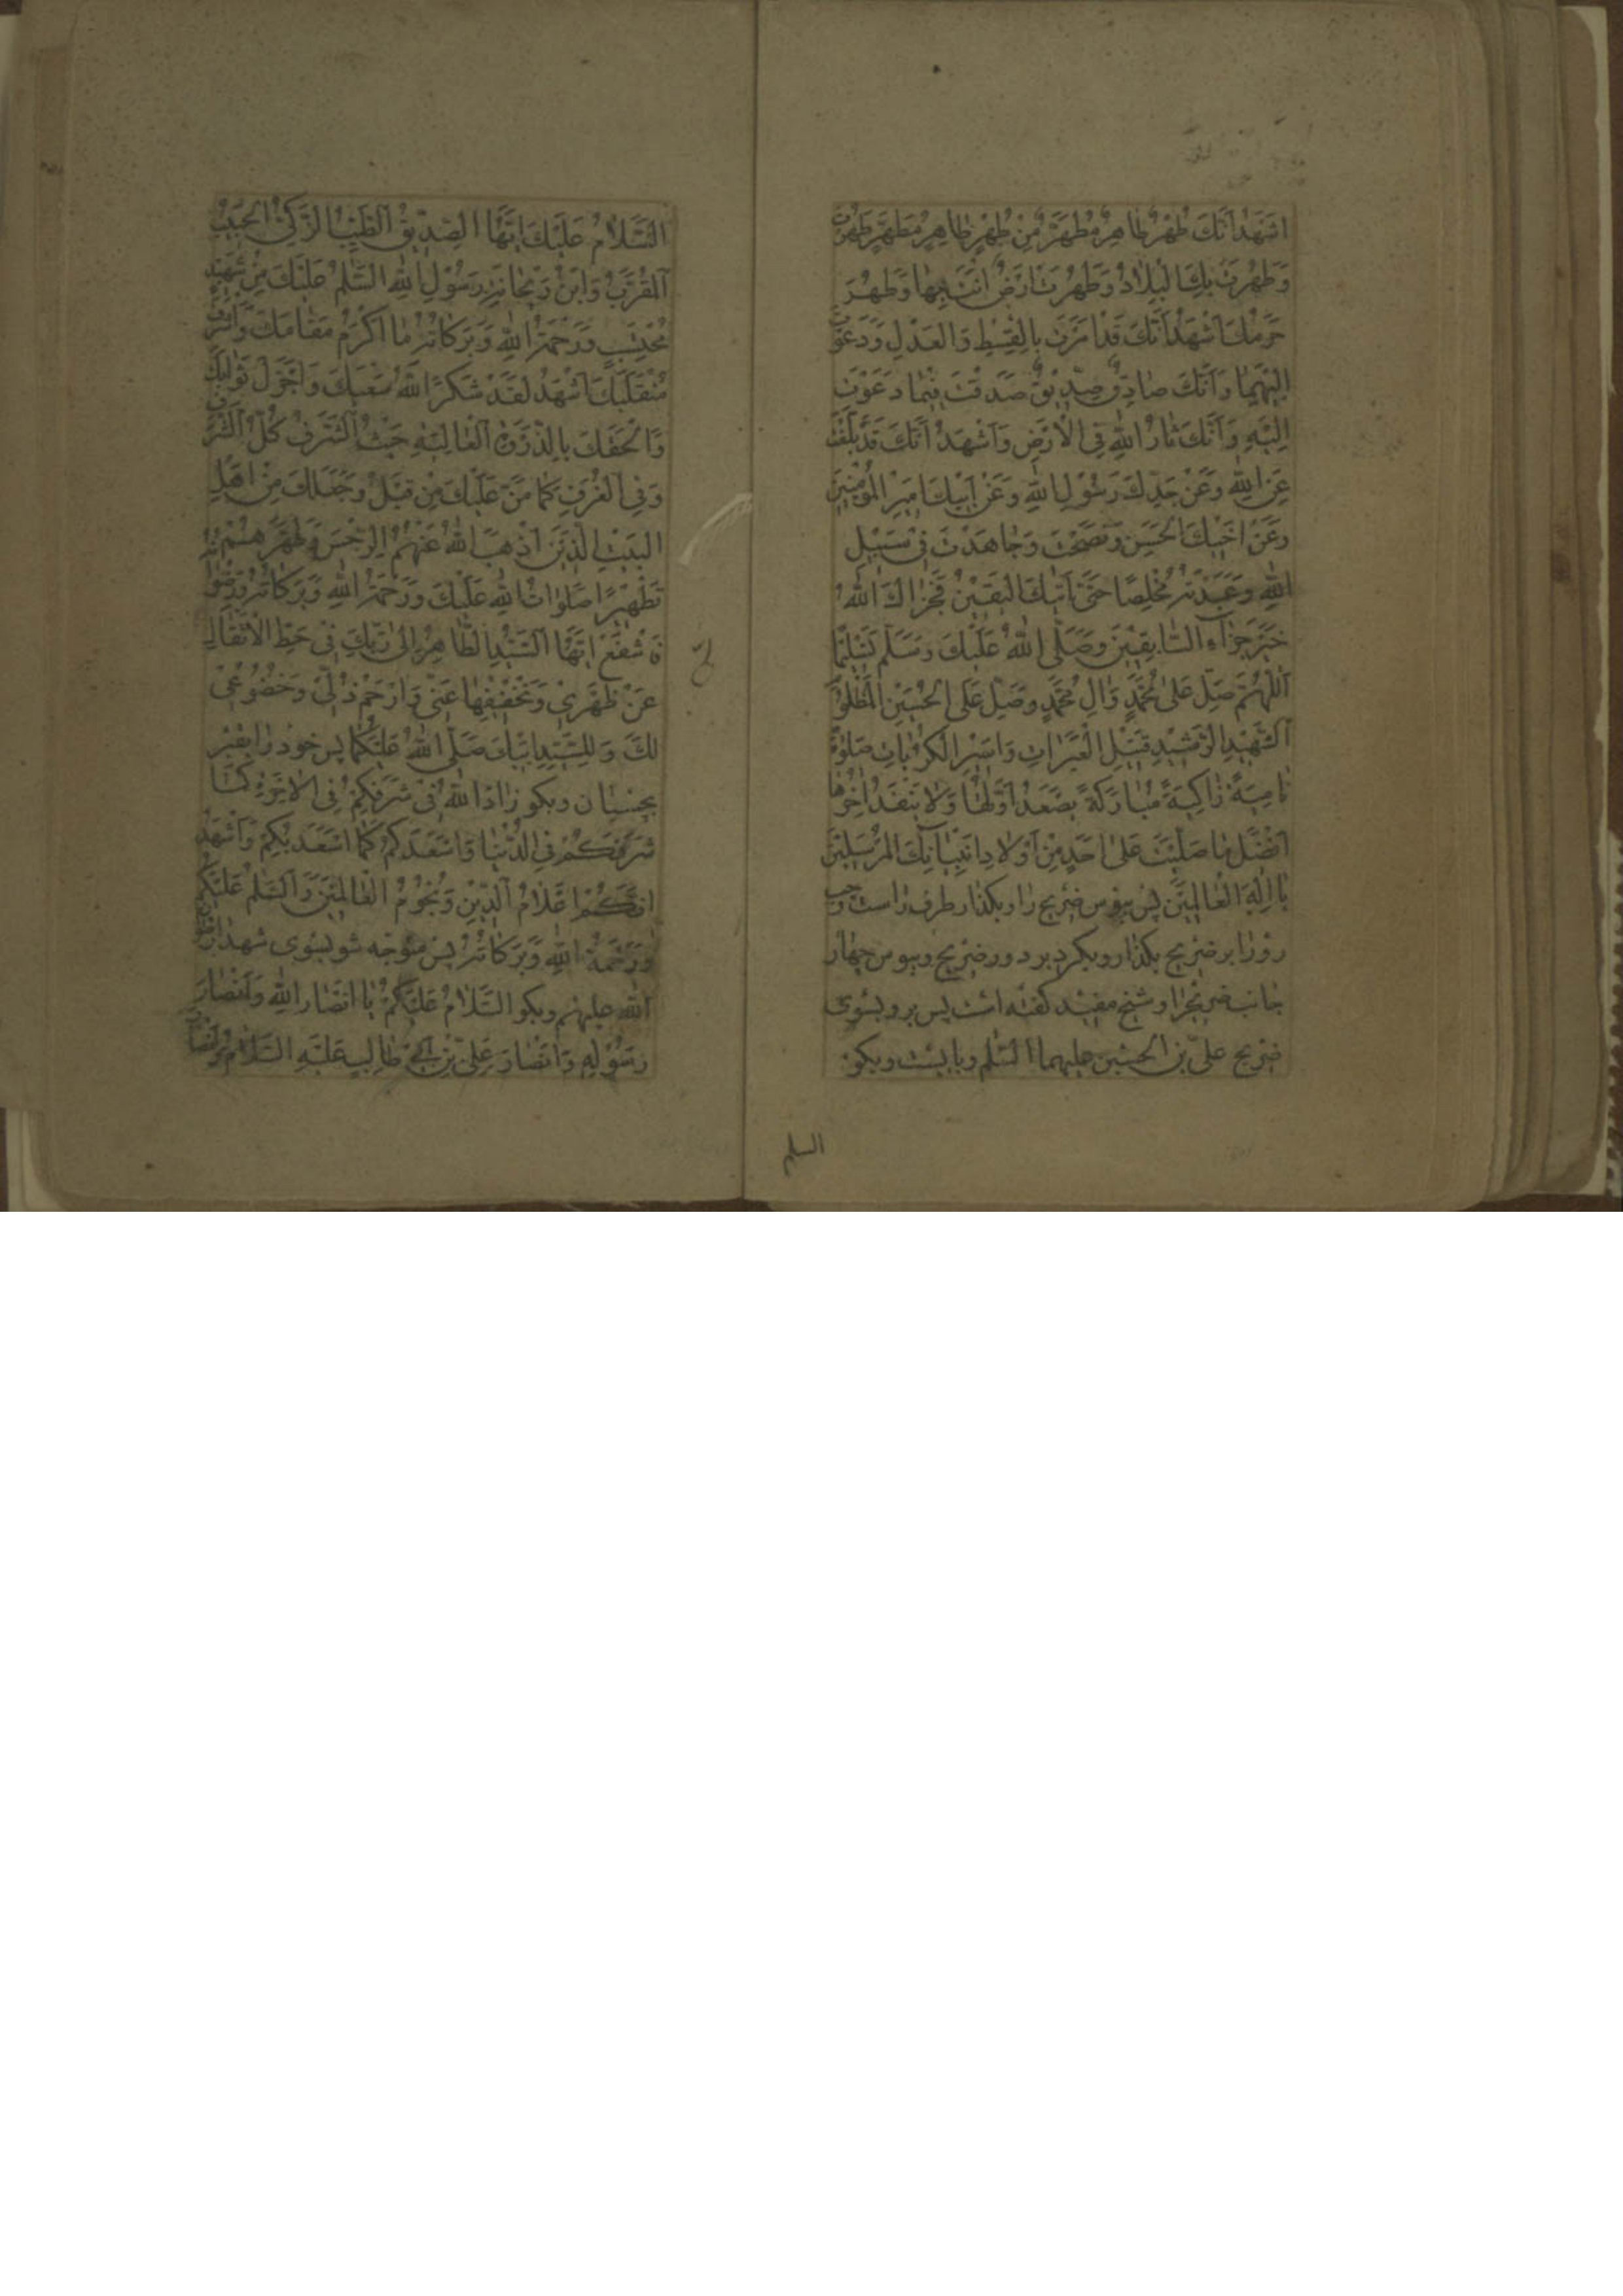 اَشْهَدُ اَنَّكَ طُهْرٌ طاهِرٌ مُطَهَّرٌ مِنْ طُهْرٍ طاهِرٍ مُطَهَّرٍ طَهُرْتَ
وَطَهُرَتْ بِكَ الْبِلادُ وَطَهُرَتْ اَرْضٌ اَنْتَ بِها وَطَهُرَ
حَرَمُكَ اَشْهَدُ اَنَّكَ قَدْ اَمَرْتَ بِالْقِسْطِ وَالْعَدْلِ وَدَعَوْتَ
اِلَيْهِما وَاَنَّكَ صادِقٌ صِدّيقٌ صَدَقْتَ فيما دَعَوْتَ
اِلَيْهِ وَاَنَّكَ ثارُ اللهِ فِي الْاَرْضِ وَاَشْهَدُ اَنَّكَ قَدْ بَلَّغْتَ
عَنِ اللهِ وَعَنْ جَدِّكَ رَسُولِ اللهِ وَعَنْ اَبيكَ اَميرِ الْمُؤْمِنينَ
وَعَنْ اَخيكَ الْحَسَنِ وَنَصَحْتَ وَجاهَدْتَ في سَبيلِ
اللهِ وَعَبَدْتَهُ مُخْلِصًا حَتّى اَتيكَ الْيَقينُ فَجَزاكَ اللهُ
خَيْرَ جَزاءِ السّابِقينَ وَصَلَّى اللهُ عَلَيْكَ وَسَلَّمَ تَسْليمًا
اَللّهُمَّ صَلِّ عَلى مُحَمَّدٍ وَالِ مُحَمَّدٍ وَصَلِّ عَلَى الْحُسَيْنِ الْمَظْلُومِ
اَلشَّهيدِ الرَّشيدِ قَتيلِ الْعَبَراتِ وَاَسيرِ الْكُرُباتِ صَلوةً
نامِيَةً زاكِيَةً مُبارَكَةً يَصْعَدُ اَوَّلُها وَلا يَنْفَدُ اخِرُها
اَفْضَلَ ما صَلَّيْتَ عَلى اَحَدٍ مِنْ اَوْلادِ اَنْبِيائِكَ الْمُرْسَلينَ
يا اِلهَ الْعالَمينَ پس ببوس ضريح را و بگذار طرف راست
رو را بر ضريح بگذار و بگرد بر دور ضريح و ببوس چهار
جانب ضريح را و شيخ مفيد گفته است پس برو بسوى
ضريح علىّ بن الحسين عليهما السّلم و بايست و بگو
السلم
السَّلامُ عَلَيْكَ اَيُّهَا الصِّدّيقُ الطَّيِّبُ الزَّكِيُّ الْحَبيبُ
الْمُقَرَّبُ وَابْنَ رَيْحانَةِ رَسُولِ اللهِ السَّلمُ عَلَيْكَ مِنْ شَهيدٍ
مُحْتَسِبٍ وَرَحْمَةُ اللهِ وَبَرَكاتُهُ ما اَكْرَمَ مَقامَكَ وَاَشْرَفَ
مُنْقَلَبَكَ اَشْهَدُ لَقَدْ شَكَرَ اللهُ سَعْيَكَ وَاَجْزَلَ ثَوابَكَ
وَاَلْحَقَكَ بِالذِّرْوَةِ الْعالِيَةِ حَيْثُ الشَّرَفُ كُلُّ الشَّرَفِ
وَفِي الْغُرَفِ كَما مَنَّ عَلَيْكَ مِنْ قَبْلُ وَجَعَلَكَ مِنْ اَهْلِ
الْبَيْتِ الَّذينَ اَذْهَبَ اللهُ عَنْهُمُ الرِّجْسَ وَطَهَّرَهُمْ
تَطْهيرًا صَلَواتُ اللهِ عَلَيْكَ وَرَحْمَةُ اللهِ وَبَرَكاتُهُ وَرِضْوانُهُ
فَاشْفَعْ اَيُّهَا السَّيِّدُ الطّاهِرُ اِلى رَبِّكَ في حَطِّ الْاَثْقالِ
عَنْ ظَهْري وَتَخْفيفِها عَنّي وَارْحَمْ ذُلّي وَخُضُوعي
لَكَ وَلِلسَّيِّدِ اَبيكَ صَلَّى اللهُ عَلَيْكُما پس خود را بقبر
بچسبان و بگو زادَ اللهُ في شَرَفِكُمْ فِي الْاخِرَةِ كَما
شَرَّفَكُمْ فِي الدُّنْيا وَاَسْعَدَكُمْ كَما اَسْعَدَ بِكُمْ وَاَشْهَدُ
اَنَّكُمْ اَعْلامُ الدّينِ وَنُجُومُ الْعالَمينَ وَالسَّلمُ عَلَيْكُمْ
وَرَحْمَةُ اللهِ وَبَرَكاتُهُ پس متوجه شو بسوى شهدا
اللهُ عليهم و بگو السَّلامُ عَلَيْكُمْ يا اَنْصارَ اللهِ وَاَنْصارَ
رَسُولِهِ وَاَنْصارَ عَلِيِّ بْنِ اَبي طالِبٍ عَلَيْهِ السَّلامُ وَاَنْصارَ